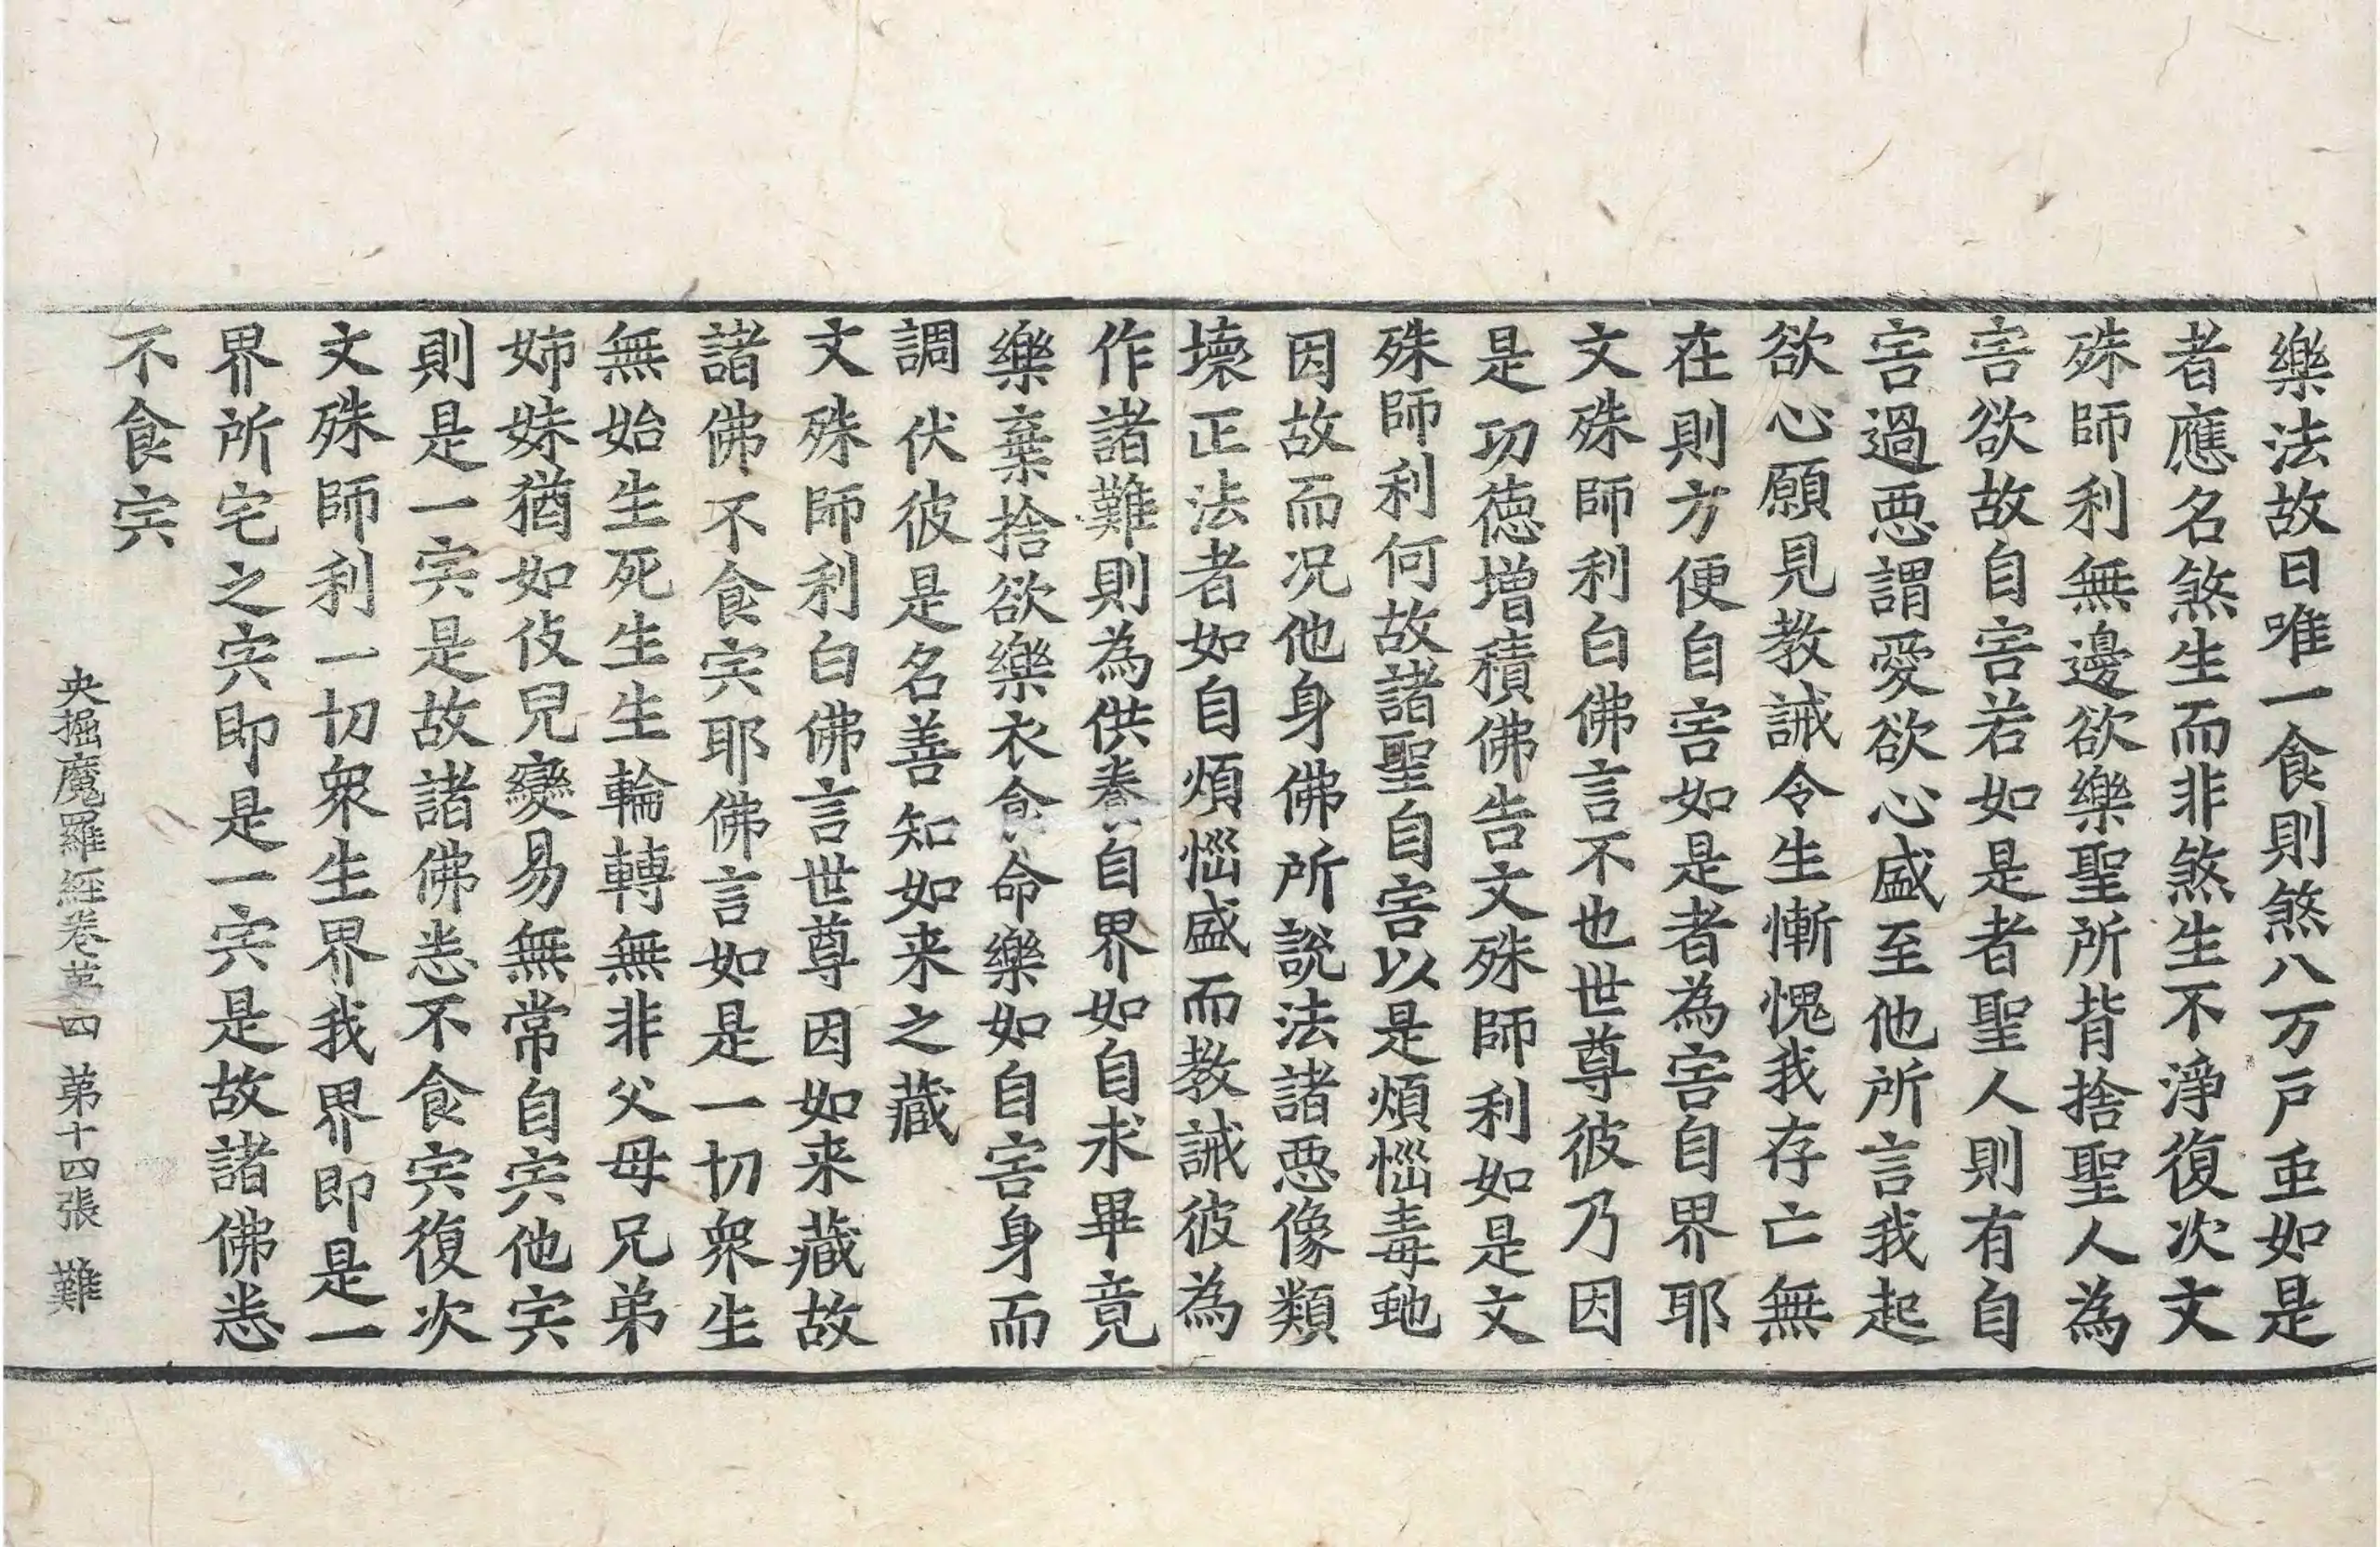 樂法故日唯一食則煞八万戸䖝如是
者應名煞生而非煞生不淨復次文
殊師利無邊欲樂聖所背捨聖人為
害欲故自害若如是者聖人則有自
害過惡謂愛欲心盛至他所言我起
欲心願見教誡令生慚愧我存亡無
在則方便自害如是者為害自界耶
文殊師利白佛言不也世尊彼乃因
是功德增積佛告文殊師利如是文
殊師利何故諸聖自害以是煩惱毒虵
因故而况他身佛所說法諸惡像類
壞正法者如自煩惱盛而教誡彼為
作諸難則為供養自界如自求畢竟
樂棄捨欲樂衣食命樂如自害身而
調伏彼是名善知如来之藏
文殊師利白佛言世尊因如来藏故
諸佛不食宍耶佛言如是一切衆生
無始生死生生輪轉無非父母兄弟
姉妹猶如伎兒變易無常自宍他宍
則是一宍是故諸佛悉不食宍復次
文殊師利一切衆生界我界即是一
界所宅之宍即是一宍是故諸佛悉
不食宍
央掘魔羅経卷苐四 第十四張 難